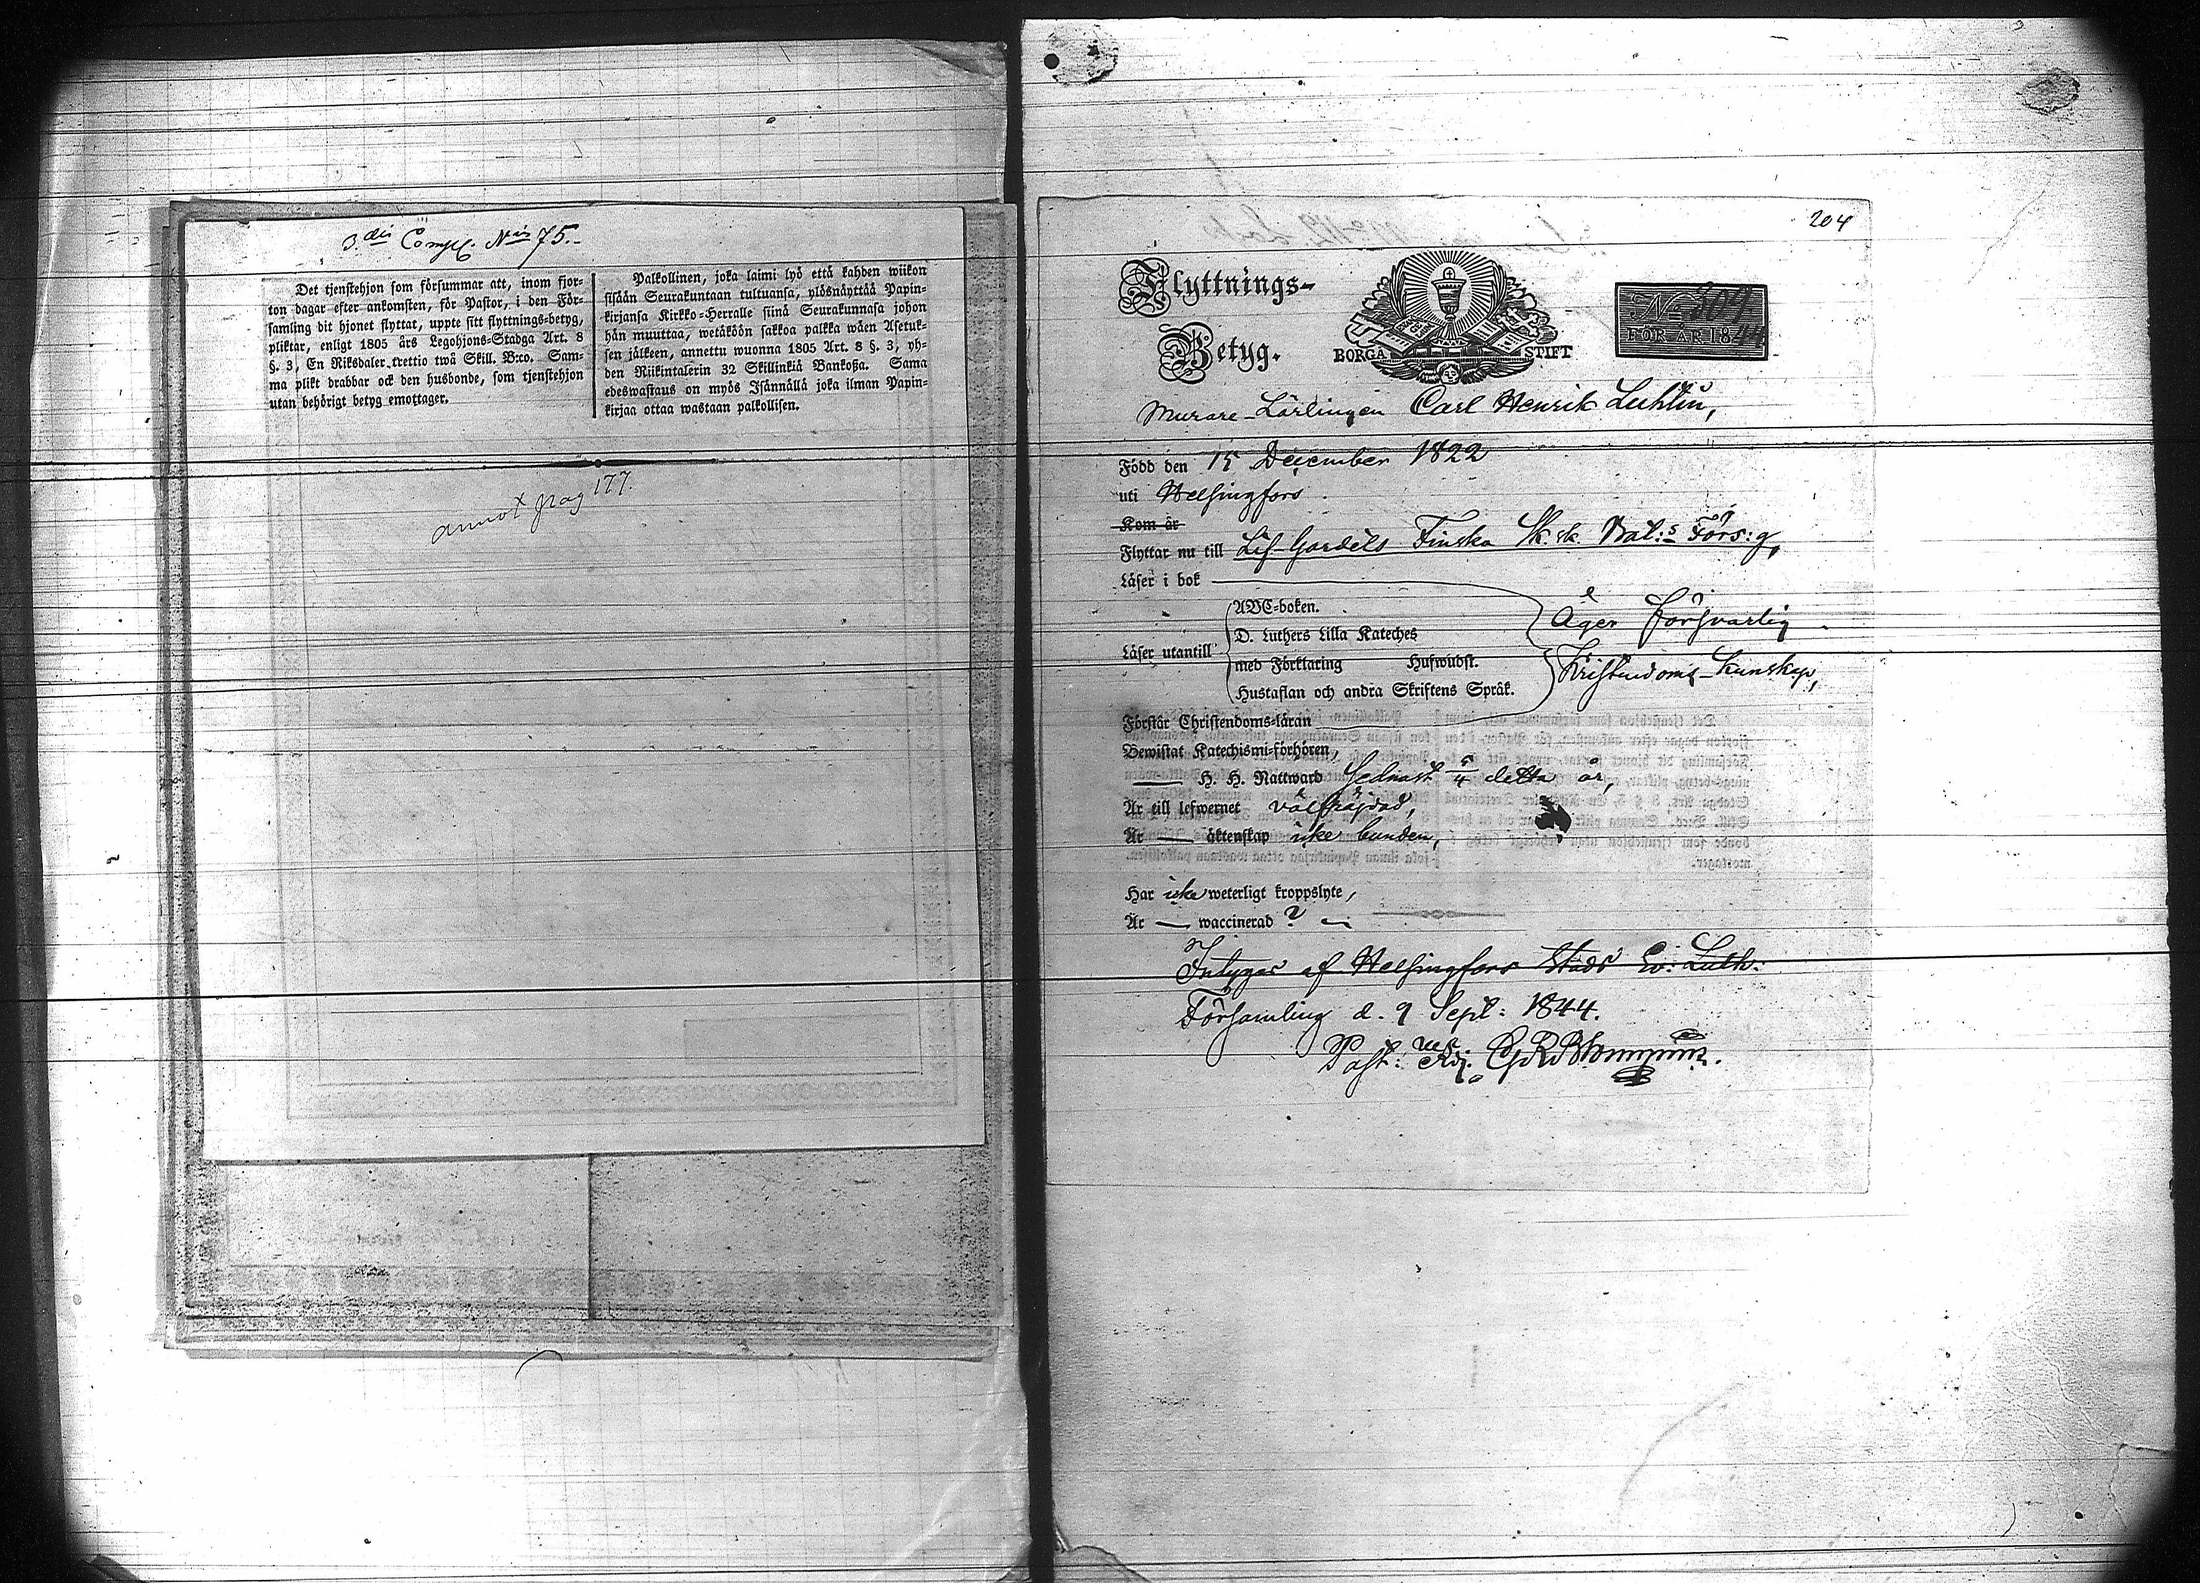 3.die Comp. No 75.
Det tjenstehjon som försummar att, inom fjor-
ton dagar efter ankomsten, för Pastor, i den För-
samling dit hjonet flyttat, uppte sitt flyttnings-betyg,
pliktar, enligt 1805 års Legohjons-Stadga Art. 8
§. 3, En Riksdaler trettio twå Skill. B:co. Sam-
ma plikt drabbar ock den husbonde, som tjenstehjon
utan behörigt betyg emottager.
Palkollinen, joka laimi lyö että kahden wiikon
sisään Seurakuntaan tultuansa, ylösnäyttää Papin-
kirjansa Kirkko-Herralle siinä Seurakunnasa johon
hän muuttaa, wetäköön sakkoa palkka wäen Asetuk-
sen jälkeen, annettu wuonna 1805 Art. 8 §. 3, yh-
den Riikintalerin 32 Skillinkiä Bankoßa. Sama
edeswastaus on myös Isännällä joka ilman Papin-
kirjaa ottaa wastaan palkollisen.
annot pag 177.
204
Flyttnings-
Betyg.
BORGÅ STIFT
No 304
FÖR ÅR 1844
Murare-Lärlingen Carl Henrik Luhlin,
Född den 15 December 1822
uti Helsingfors.
Kom år
Flyttar nu till Lif-Gardets Finska Sk.sk. Bat:s Förs:g,
Läser i bok
Läser utantill
ABC-boken.
D. Luthers Lilla Kateches
med Förklaring Hufwudst.
Hustaflan och andra Skriftens Språk.
Äger försvarlig
Kristendoms-kunskap,
Förstår Christendoms-läran
Bewistat Katechismi-förhören,
H. H. Nattward sednast 5/4 detta år,
Är till lefwernet välfräjdad,
Är äktenskap icke bunden,
Har icke weterligt kroppslyte,
Är waccinerad ?
Intygas af Helsingfors Stads Ev: Luth:
Församling d. 9 Sept: 1844.
Past: Adj.